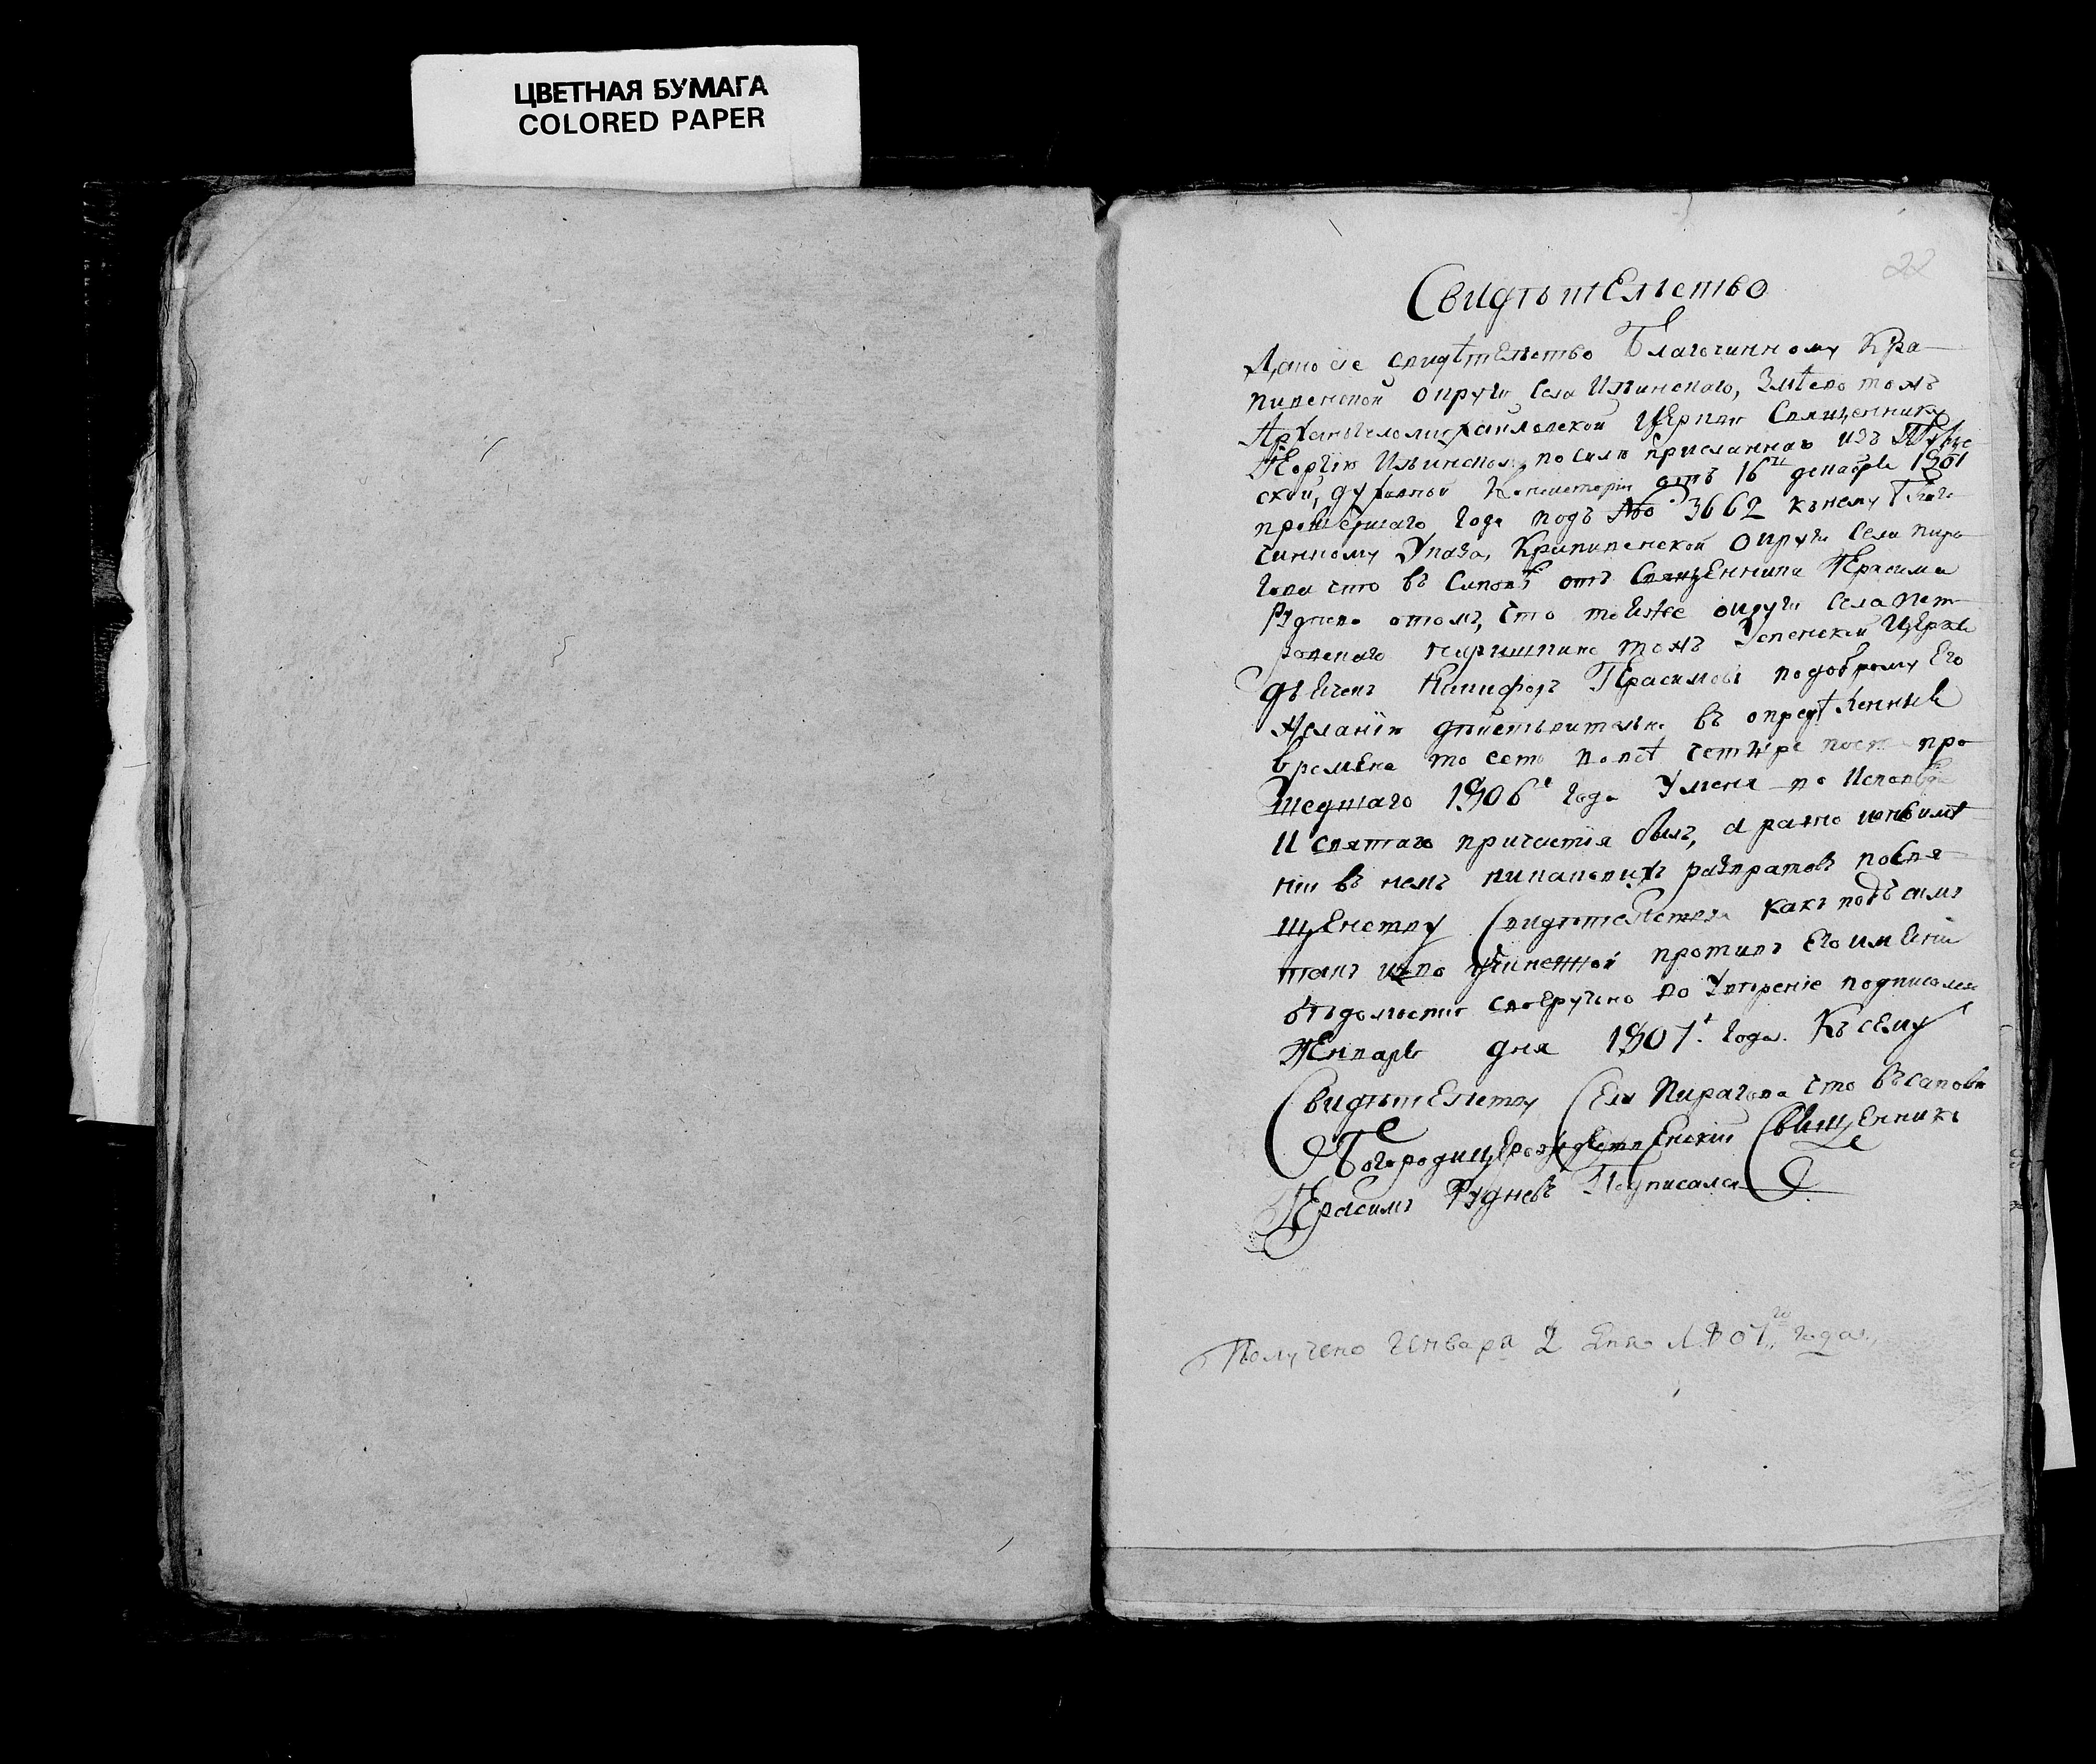 ЦВЕТНАЯ БУМАГА
COLORED PAPER
22
Свидѣтельство
Дано сіе свидѣтельство Благочинному Кра-
пивенской округи села Ильинскаго, Змѣево томъ
Архангеломихайловской Церкви Священнику
Георгію Ильинскому, по силѣ присланнаго изъ Тульс
ской, духовной Консисторіи отъ 16 декабря
прошедшаго года подъ № 3662 къ нему Благо
чинному Указа, Крапивенской округи села Пиро
гова что въ Сиповѣ отъ Священника Герасима
Руднева о томъ, что тое же округи села Пет
ровскаго тожъ Успенской Церкви
дьячекъ Никифоръ Герасимовъ по доброму его
желанію дѣйствительно въ опредѣленныѣ
времена то есть во всѣ четыре поста про
шедшаго 1806 года у меня на исповѣди
и святаго причастія былъ, а равно
въ немъ никаковыхъ развратовъ по свя
щенству свидѣтельствую какъ подъ симъ
такъ и на учиненной противъ его имени
вѣдомости своеручно во увѣреніе подписался
Генваря дня 1807 года. Къ сему
Свидѣтельству Села Пирагова что въ сиповѣ
Богородицерождественскій Священникъ
Герасимъ Рудневъ Подписался
Получено Генваря 2 дня 1807го года,,